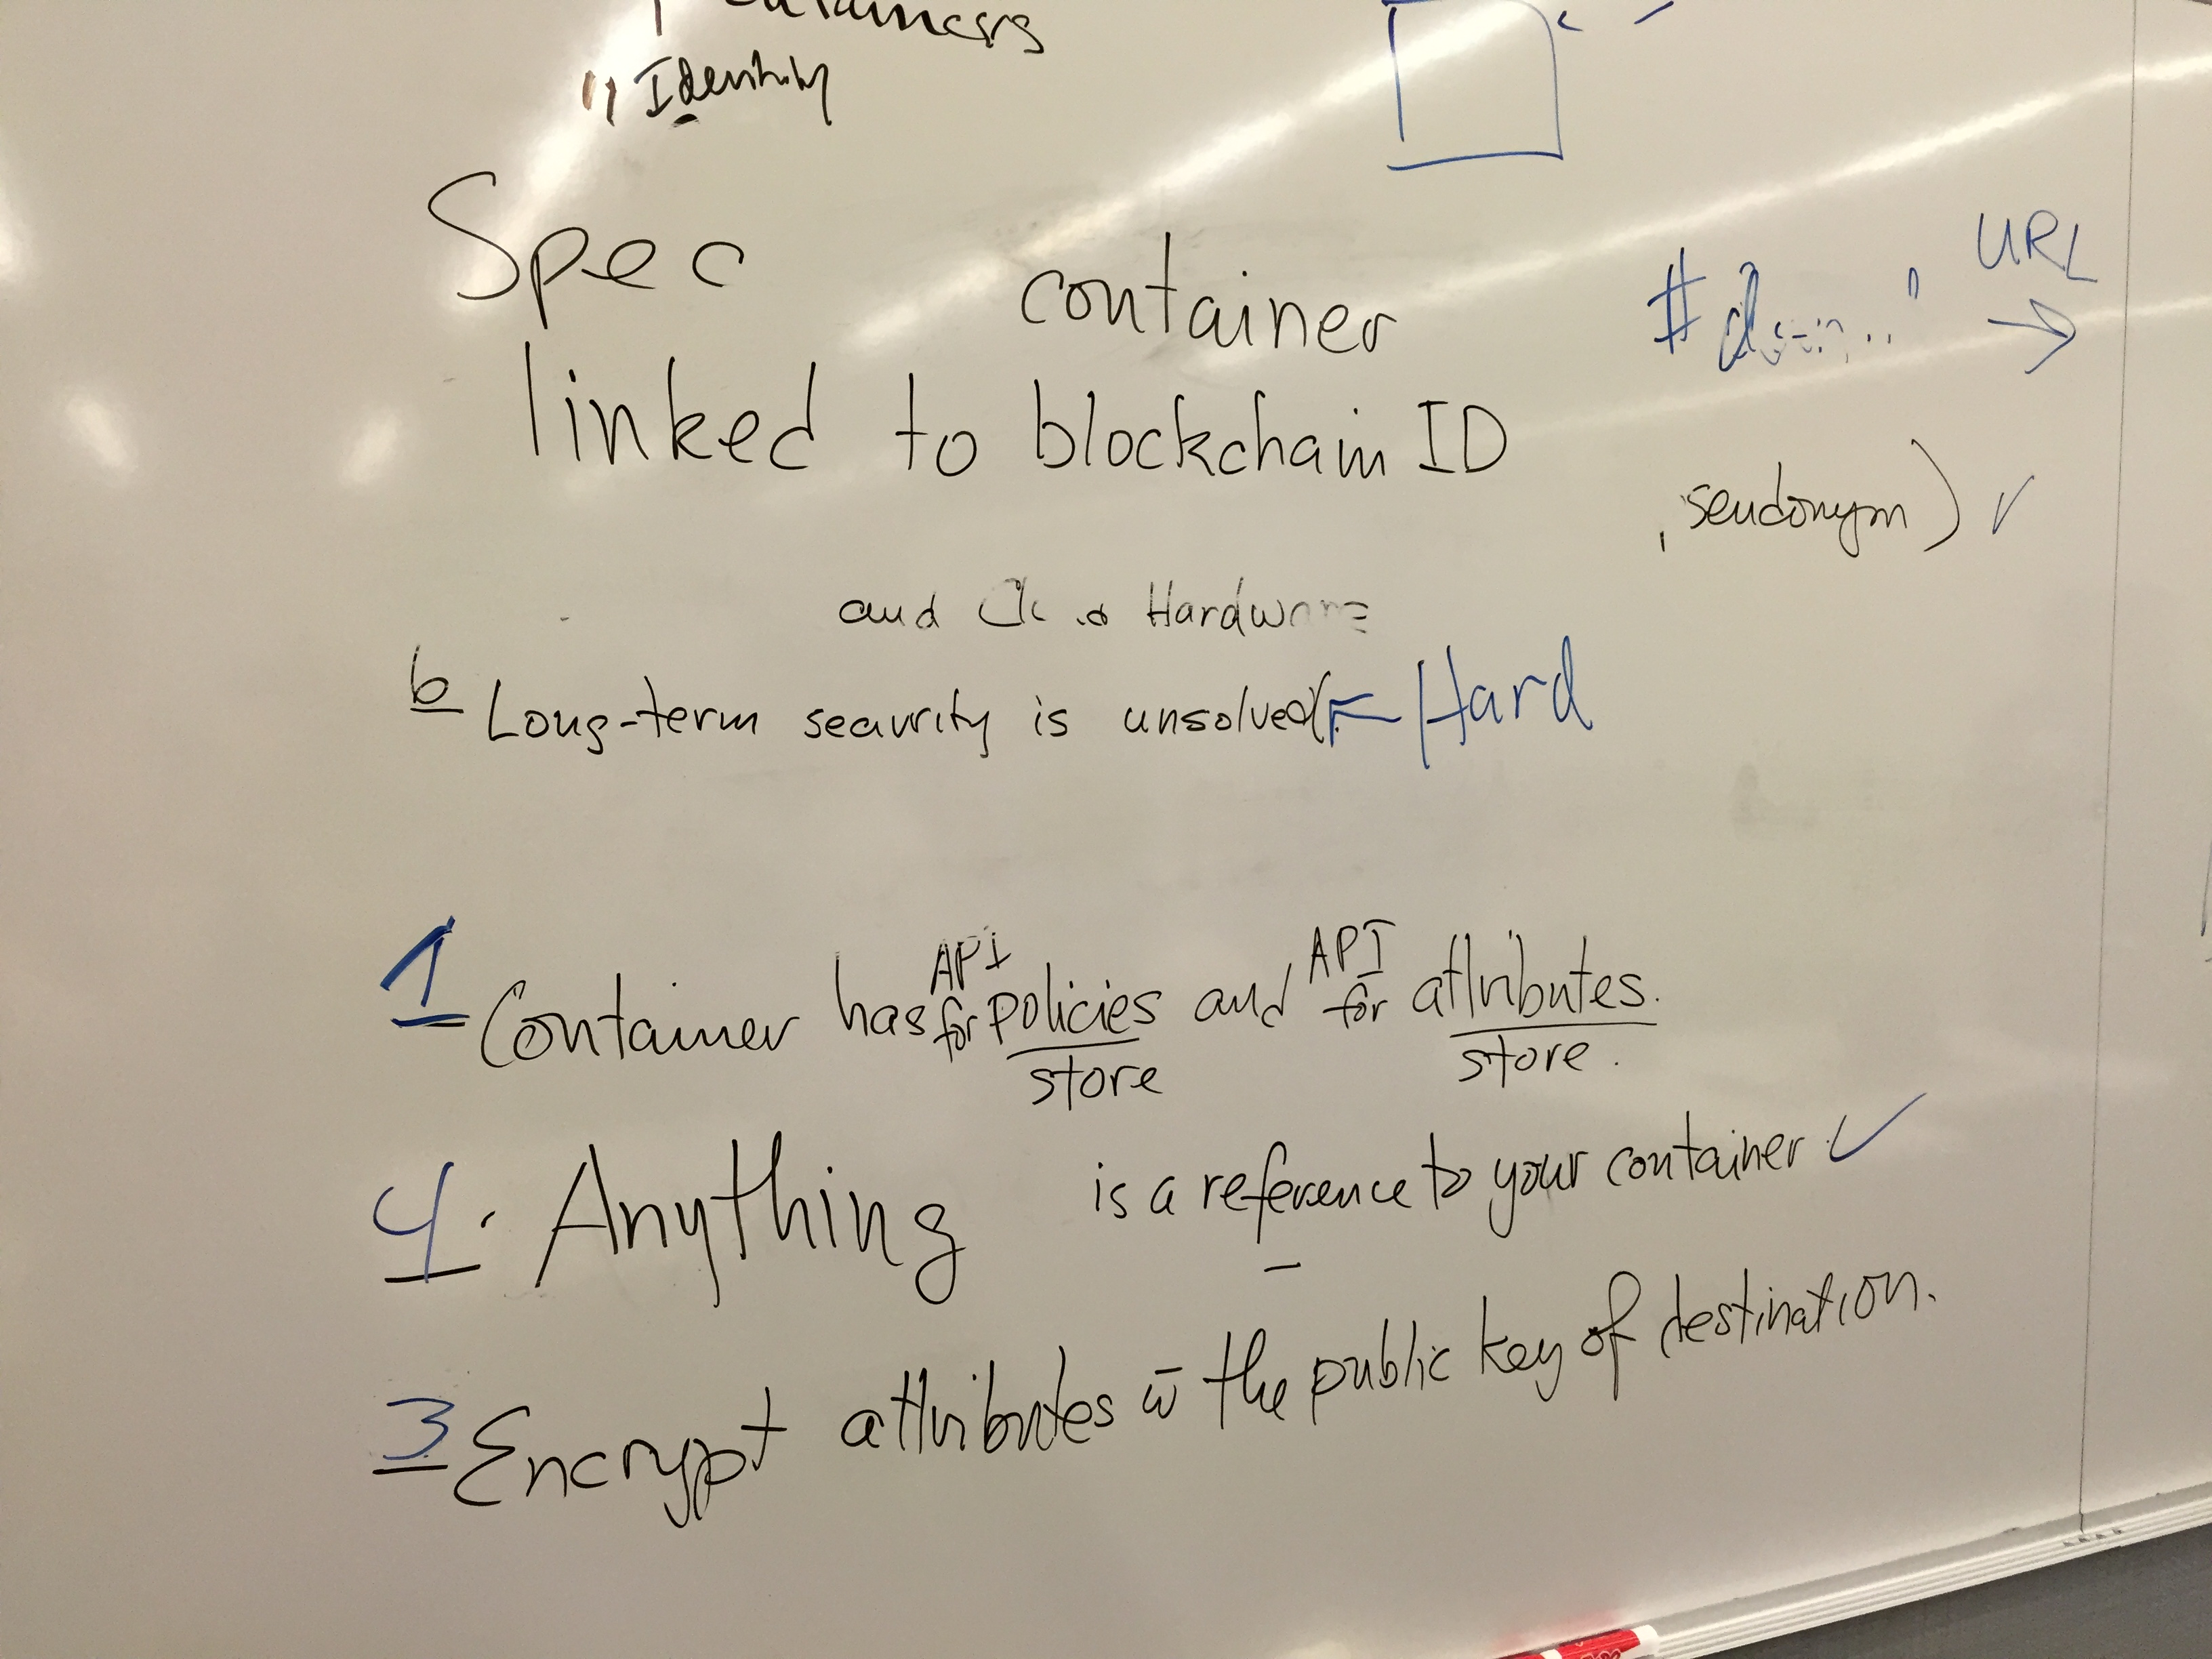 Identity
Spec container
URL
linked to blockchain ID
, seudonym) ✓
and Hardware
6 Long-term security is unsolved ← Hard
API API
1 Container has for policies and for attributes.
store store.
4. Anything is a reference to your container ✓
3 Encrypt attributes w̄ the public key of destination.